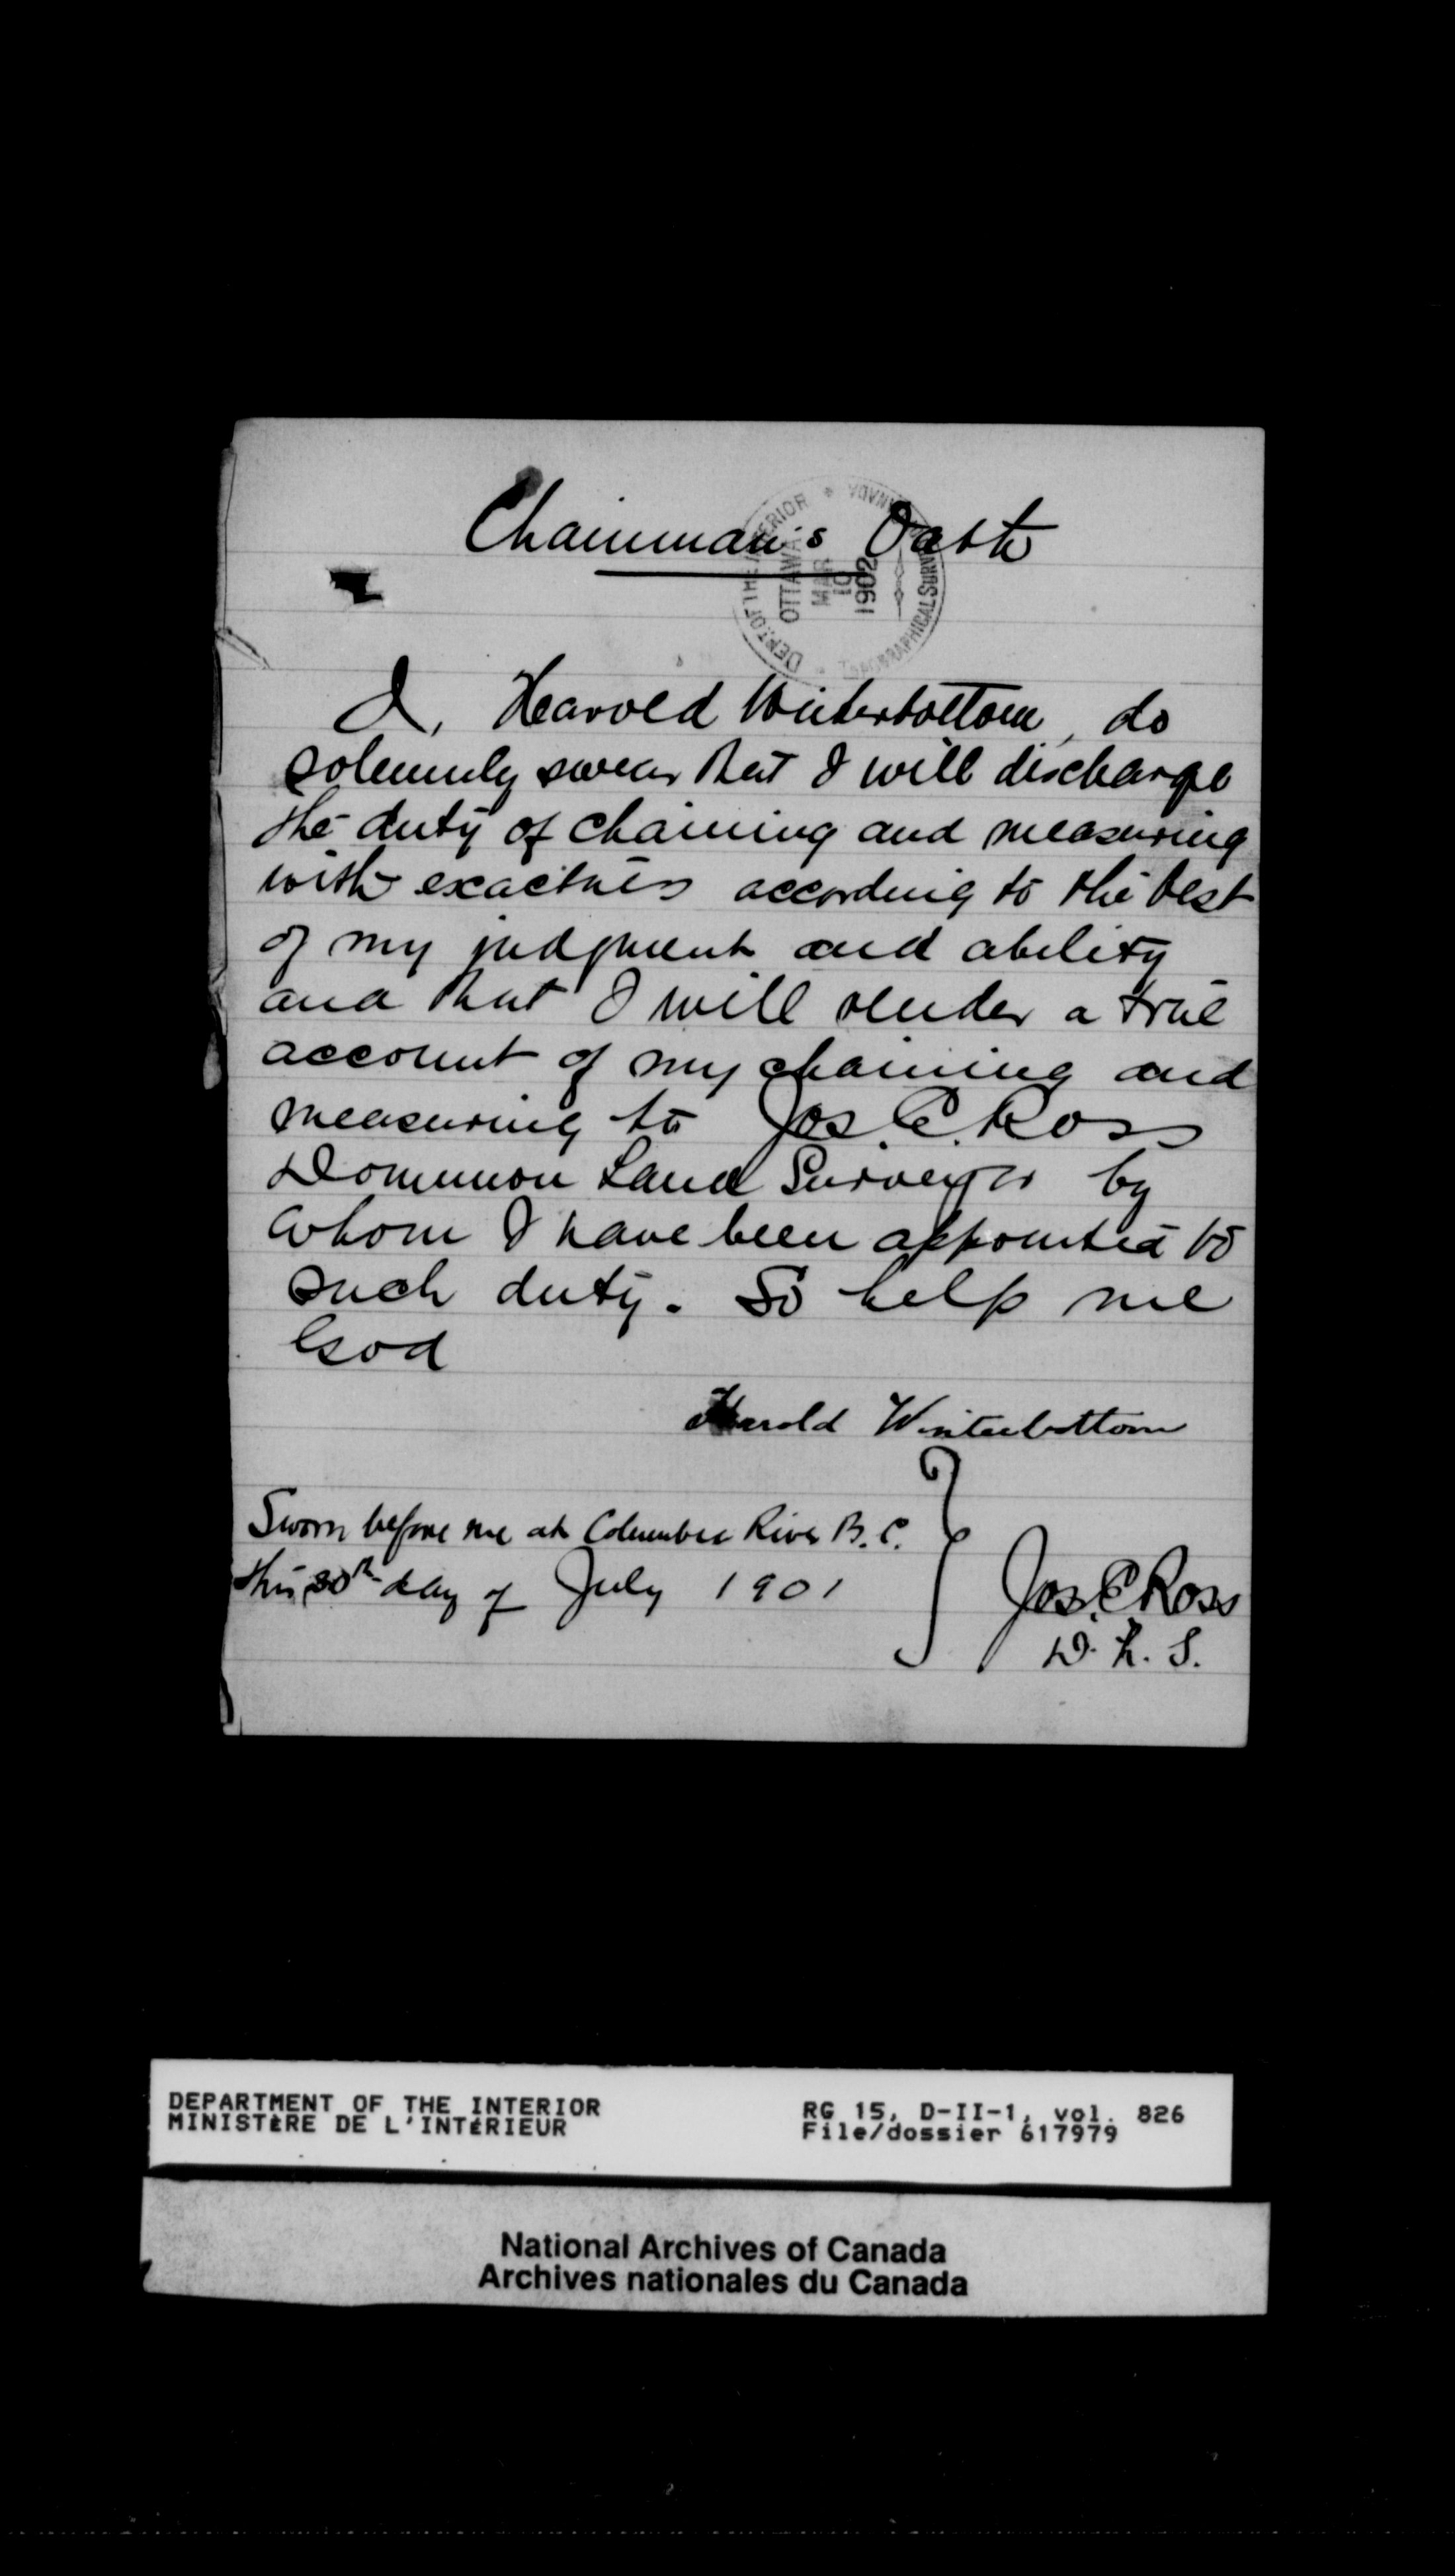 Chainman's Oath
DEPT. OF THE INTERIOR * CANADA
TOPOGRAPHICAL SURVEYS
OTTAWA
MAR
10
1902
I, Harold Winterbottom, do
solemnly swear that I will discharge
the duty of chaining and measuring
with exactness according to the best
of my judgment and ability
and that I will render a true
account of my chaining and
measuring to Jos. C. Ross
Dominion Land Surveyor by
whom I have been appointed to
such duty. So help me
God
Harold Winterbottom
Sworn before me at Columbia River B.C.
this 30th day of July 1901
Jos. C Ross
D. L. S.
DEPARTMENT OF THE INTERIOR
MINISTÈRE DE L'INTÉRIEUR
RG 15, D-II-1, vol. 826
File/dossier 617979
National Archives of Canada
Archives nationales du Canada